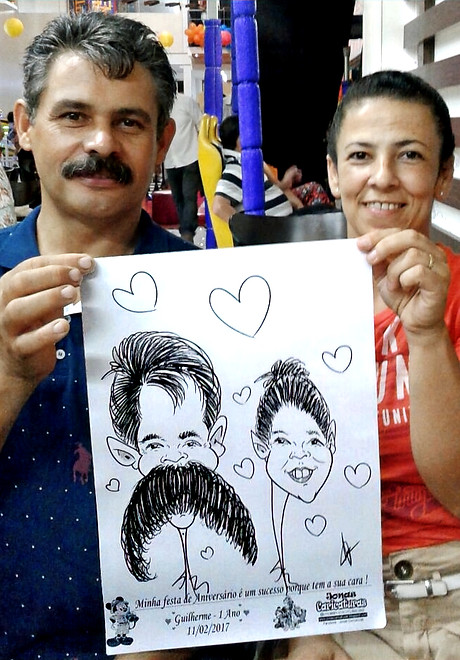 Minha festa de Aniversário é um sucesso porque tem a sua cara !
Guilherme - 1 Ano
11/02/2017
Jonas
Caricaturas